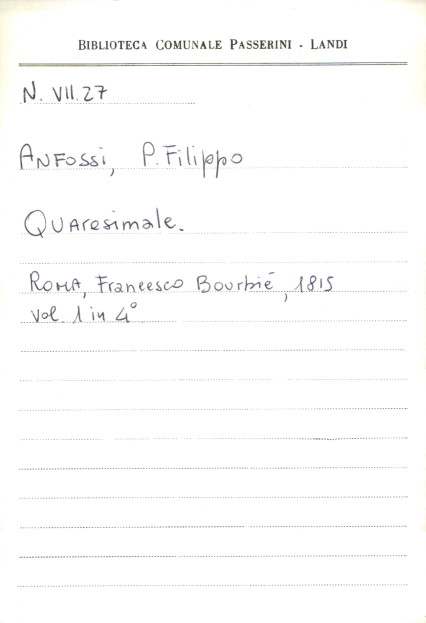 BIBLIOTECA COMUNALE PASSERINI - LANDI
N. VII.27
ANFOSSI, P. Filippo
Quaresimale.
ROMA, Francesco Bourbié, 1815
vol. 1 in 4°